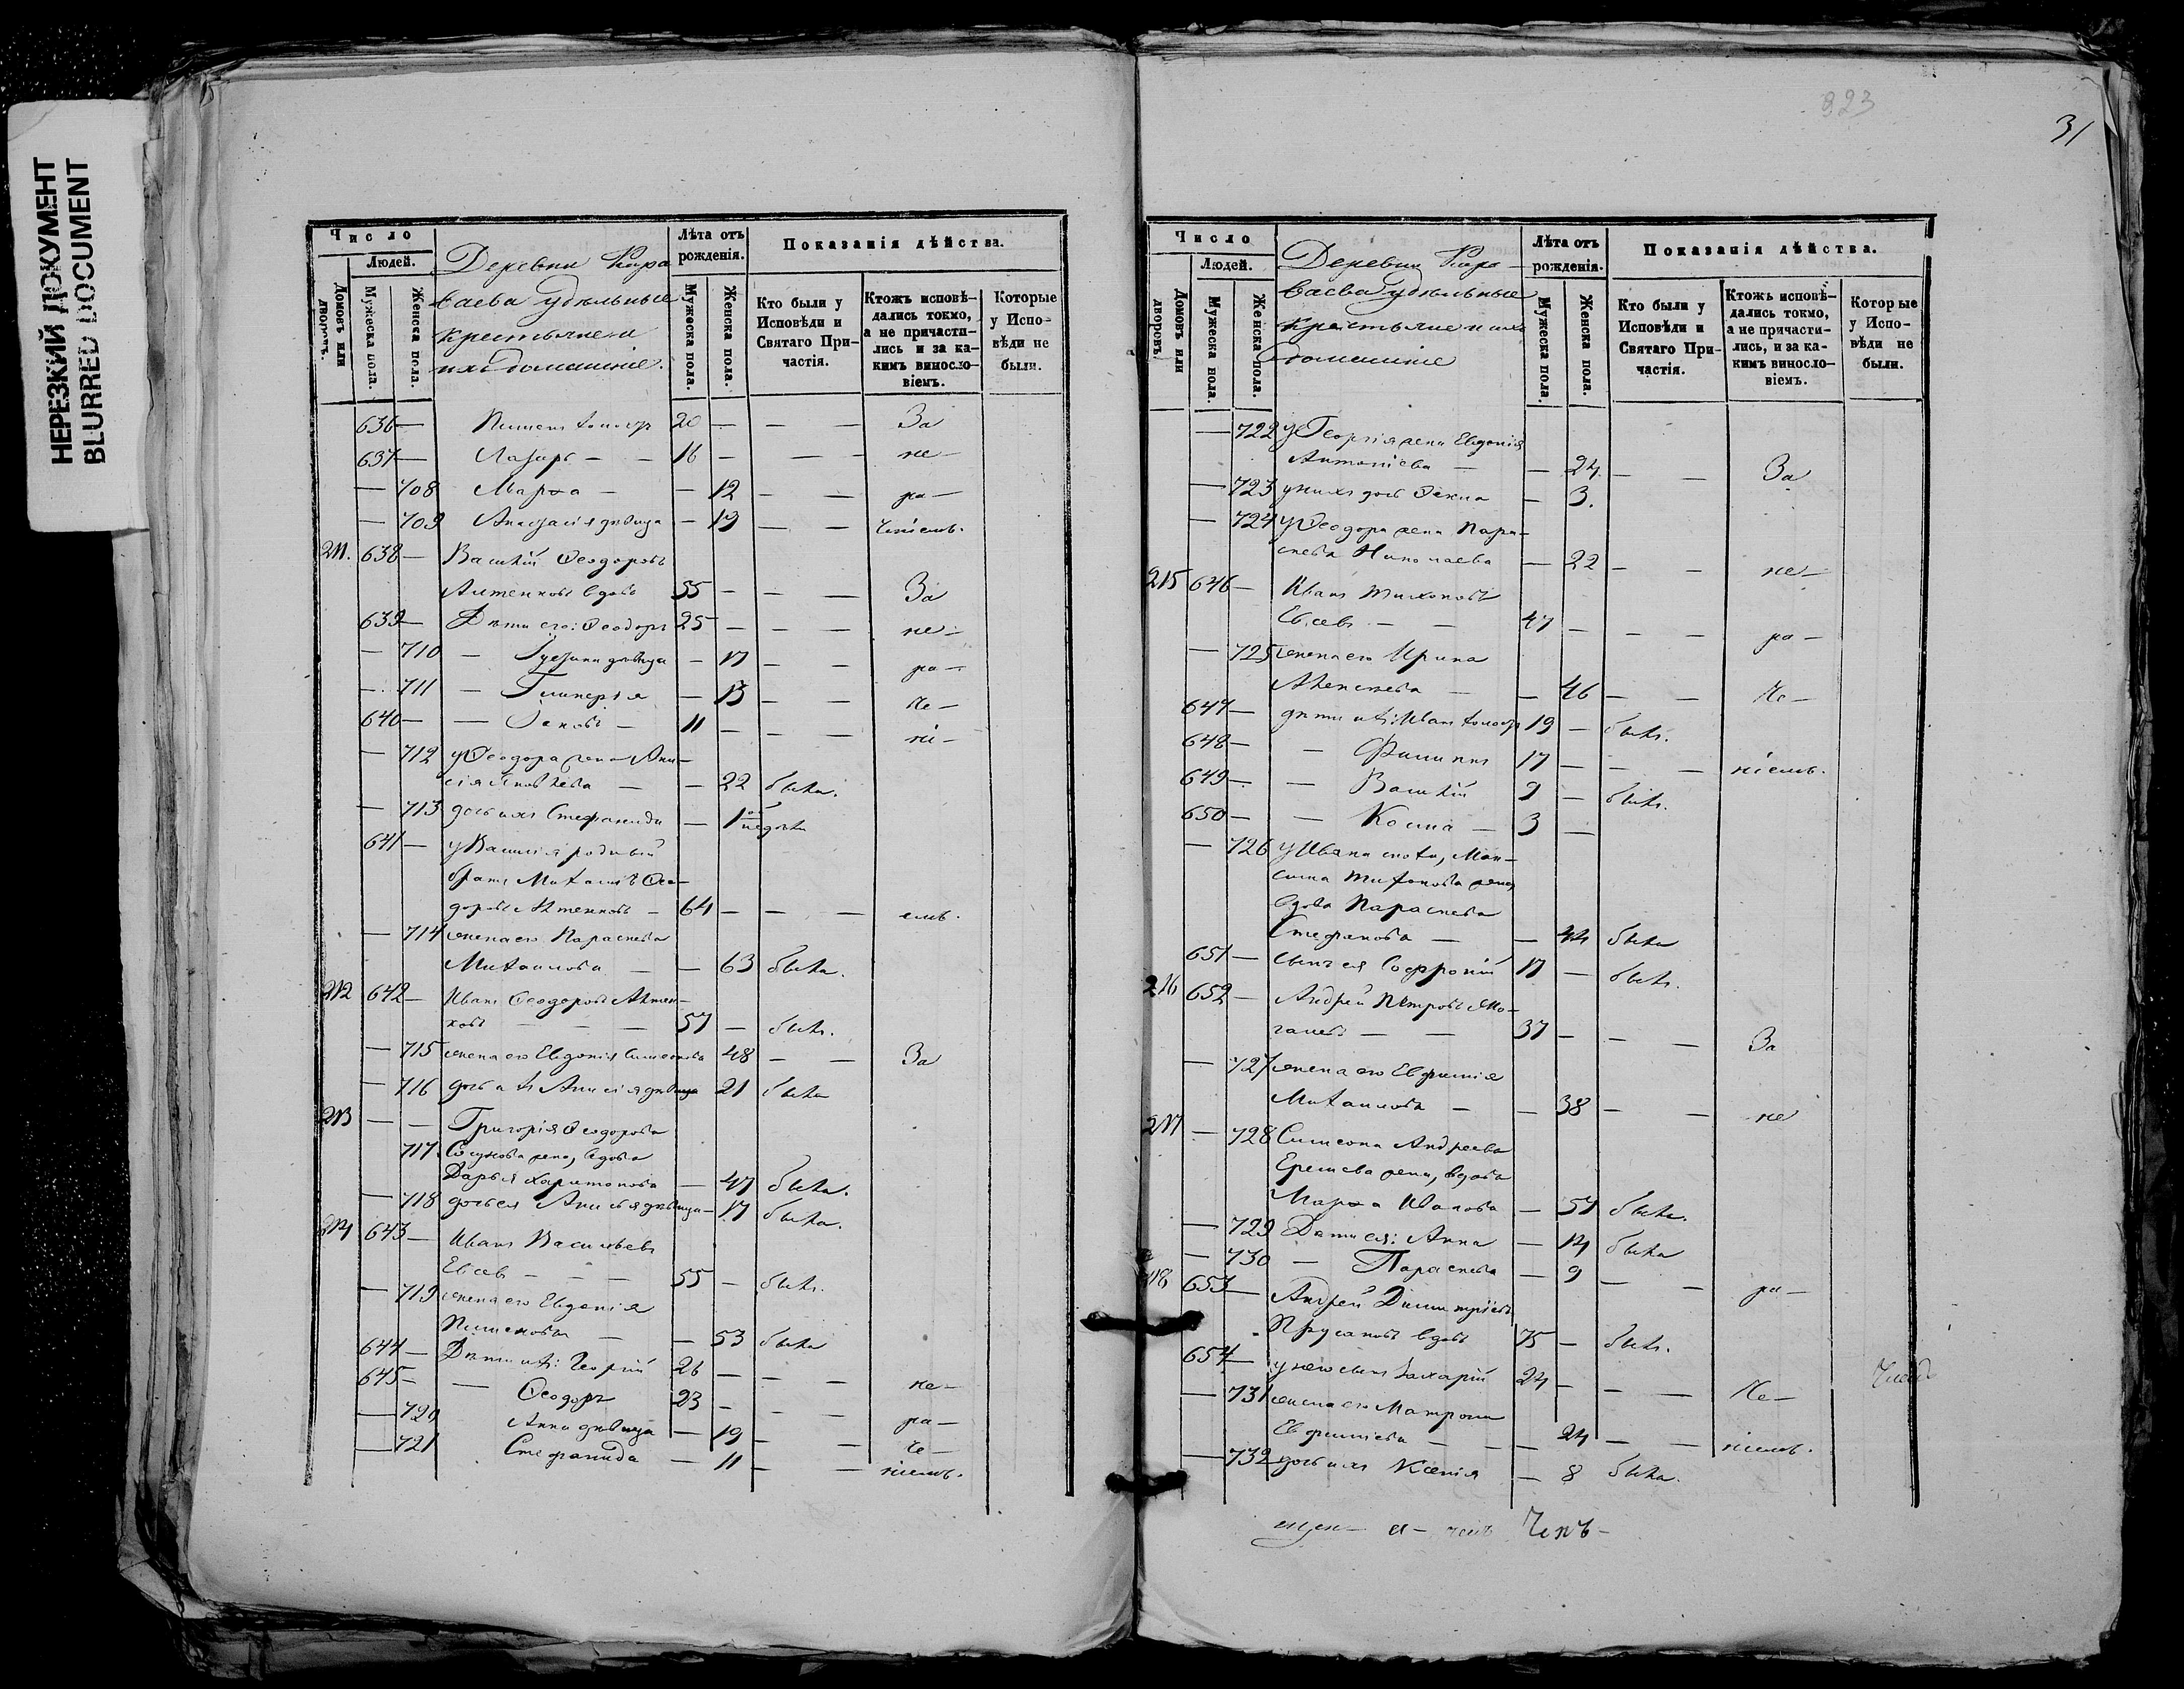 НЕРЕЗКИЙ ДОКУМЕНТ
BLURRED DOCUMENT
Число
Людей.
Домовъ или дворовъ.
Мужеска пола.
Женска пола.
Деревни Кара
ваева удѣльные
крестьяне и
ихъ домашніе.
Лѣта отъ рожденія.
Мужеска пола.
Женска пола.
Показанія дѣйства.
Кто были у Исповѣди и Святаго При-частія.
Ктожъ исповѣ-дались токмо, а не причасти-лись и за ка-кимъ винословіемъ.
Которые у Испо-вѣди не были.
636 — Пименъ 20 — — — За
637 — Лазарь — — 16 — — — не —
— 708 Марѳа — — 12 — — ра —
— 709 Анастасія дѣвица — 19 — —
211. 638 — Василій Ѳеодоровъ
вдовъ 55 — — — За
639 — Дѣти его: Ѳеодоръ 25 — — — не —
— 710 — дѣвица — 17 — — ра —
— 711 — Гликерія — 13 — — че —
640 — — Іаковъ — 11 — — — ні —
— 712 у Ѳеодора жена Ани-
сія Яковлева — — 22 была.
— 713 дочь ихъ Стефанида — 1
641 — у Василія родный
братъ Михаилъ Ѳео-
доровъ — 64 — — — емъ.
— 714 жена его Параскева
Михаилова — — 63 была.
212 642 — Иванъ Ѳеодоровъ
— — — 57 — былъ.
— 715 жена его Евдокія Симеонова 48 — — За
— 716 дочь ихъ Анисія дѣвица 21 была
213 — — Григорія Ѳеодорова
717. жена, вдова
Дарья Харитонова — 47 была.
— 718 дочь ея Анисья дѣвица — 17 была.
214 643 — Иванъ Васильевъ
Евсевъ — — — 55 — былъ.
— 719 жена его Евдокія
Пименова — — 53 была
644 — Дѣти ихъ: Георгій 26 — — — не —
645 — — Ѳеодоръ 23 — — — ра —
— 720 Анна дѣвица — 19 — — че —
— 721 Стефанида — 11 — — ніемъ.
823
31
Число
Людей.
Домовъ или дворовъ.
Мужеска пола.
Женска пола.
Деревни Кара —
ваева удѣльные
крестьяне и ихъ
домашніе
Лѣта отъ рожденія.
Мужеска пола.
Женска пола.
Показанія дѣйства.
Кто были у Исповѣди и Святаго При-частія.
Ктожъ исповѣ-дались токмо, а не причасти-лись, и за ка-кимъ винословіемъ.
Которые у Испо-вѣди не были.
— 722 у Георгія жена Евдокія
Антоніева — — 24 — — За
— 723 у нихъ дочь Ѳекла — 3.
— 724 у Ѳеодора жена Пара-
скева Николаева — 22 — — не —
215 646 — Иванъ Тихоновъ
Евсевъ — — 47 — — — ра —
— 725 жена его Ирина
Алексеева — — 46 — — че —
647 — дѣти ихъ: Иванъ 19 — былъ.
648 — — Филиппъ 17 — — — ніемъ.
649 — — Василій 9 — былъ.
650 — — Косма — 3 —
— 726 у Ивана Мак-
сима Тихонова жена
вдова Параскева
Стефанова — — 44 была
651 — сынъ ея Софроній 17 — былъ.
216 652 — Андрей Петровъ
— — 37 — — — За
— 727 жена его Евфимія
Михаилова — — 38 — — не
217 — 728 Симеона Андреева
жена, вдова
Марѳа Иванова — 57 была.
— 729 Дѣти ея: Анна — 14 была
— 730 — Параскева — 9 — — ра —
218 653 — Андрей Димитріевъ
Прусаковъ вдовъ 75 — былъ.
654 — у него сынъ Захарій 24 — — — че —
— 731 жена его Матрона
Евфиміева — — — 24 — — ніемъ.
— 732 дочь ихъ Ксенія — 8 была.